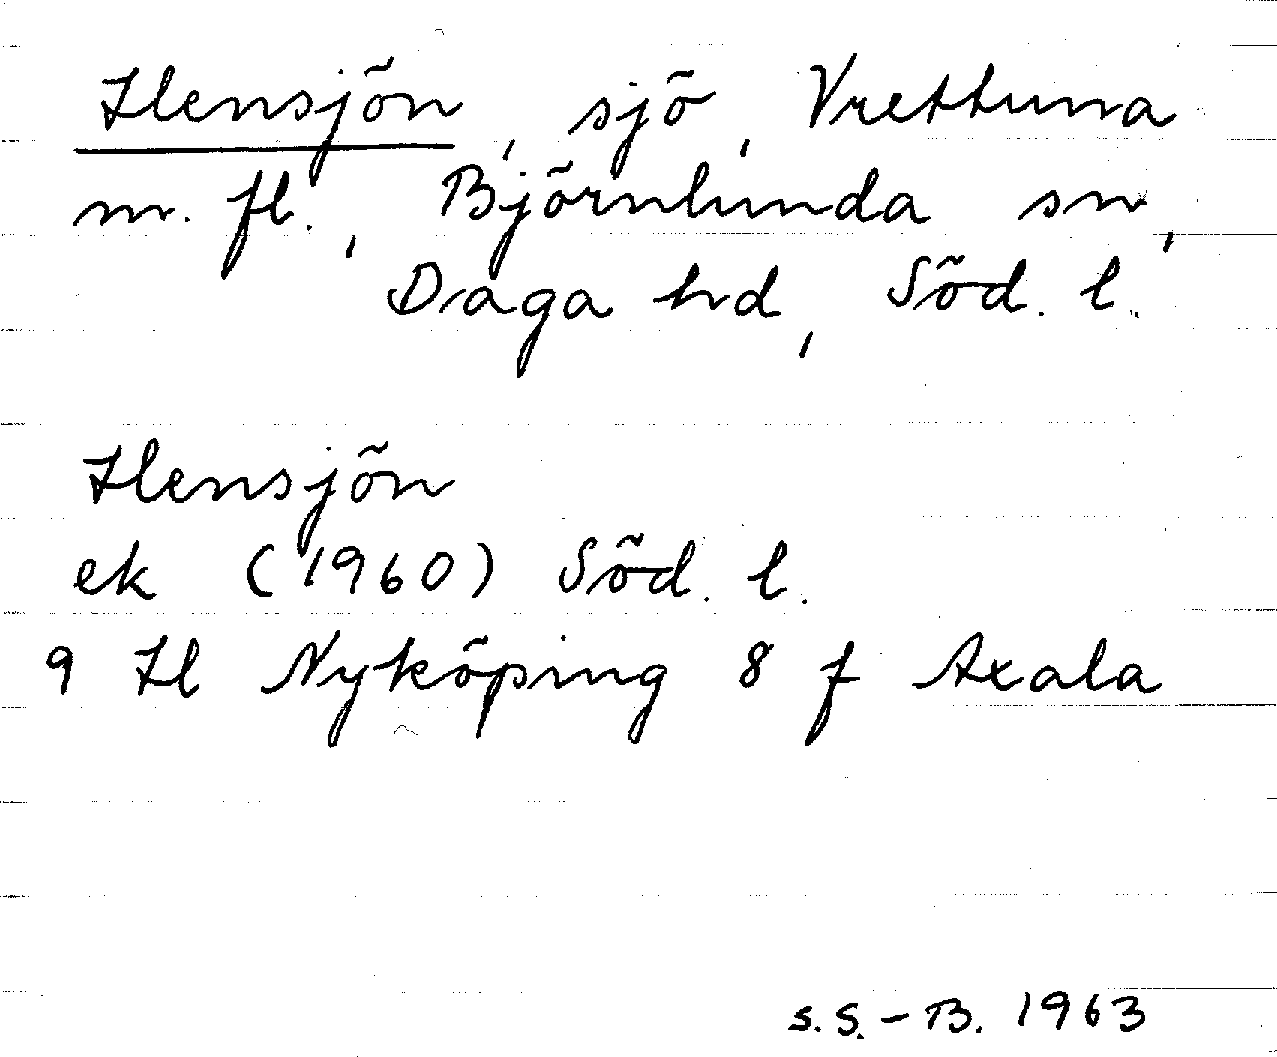 Hensjön, sjö, Vrettuna
m. fl., Björnlunda sn,
Daga hd, Söd. l.
Hensjön
ek (1960) Söd. l.
9 H Nyköping 8 f Axala
S. S. - B. 1963